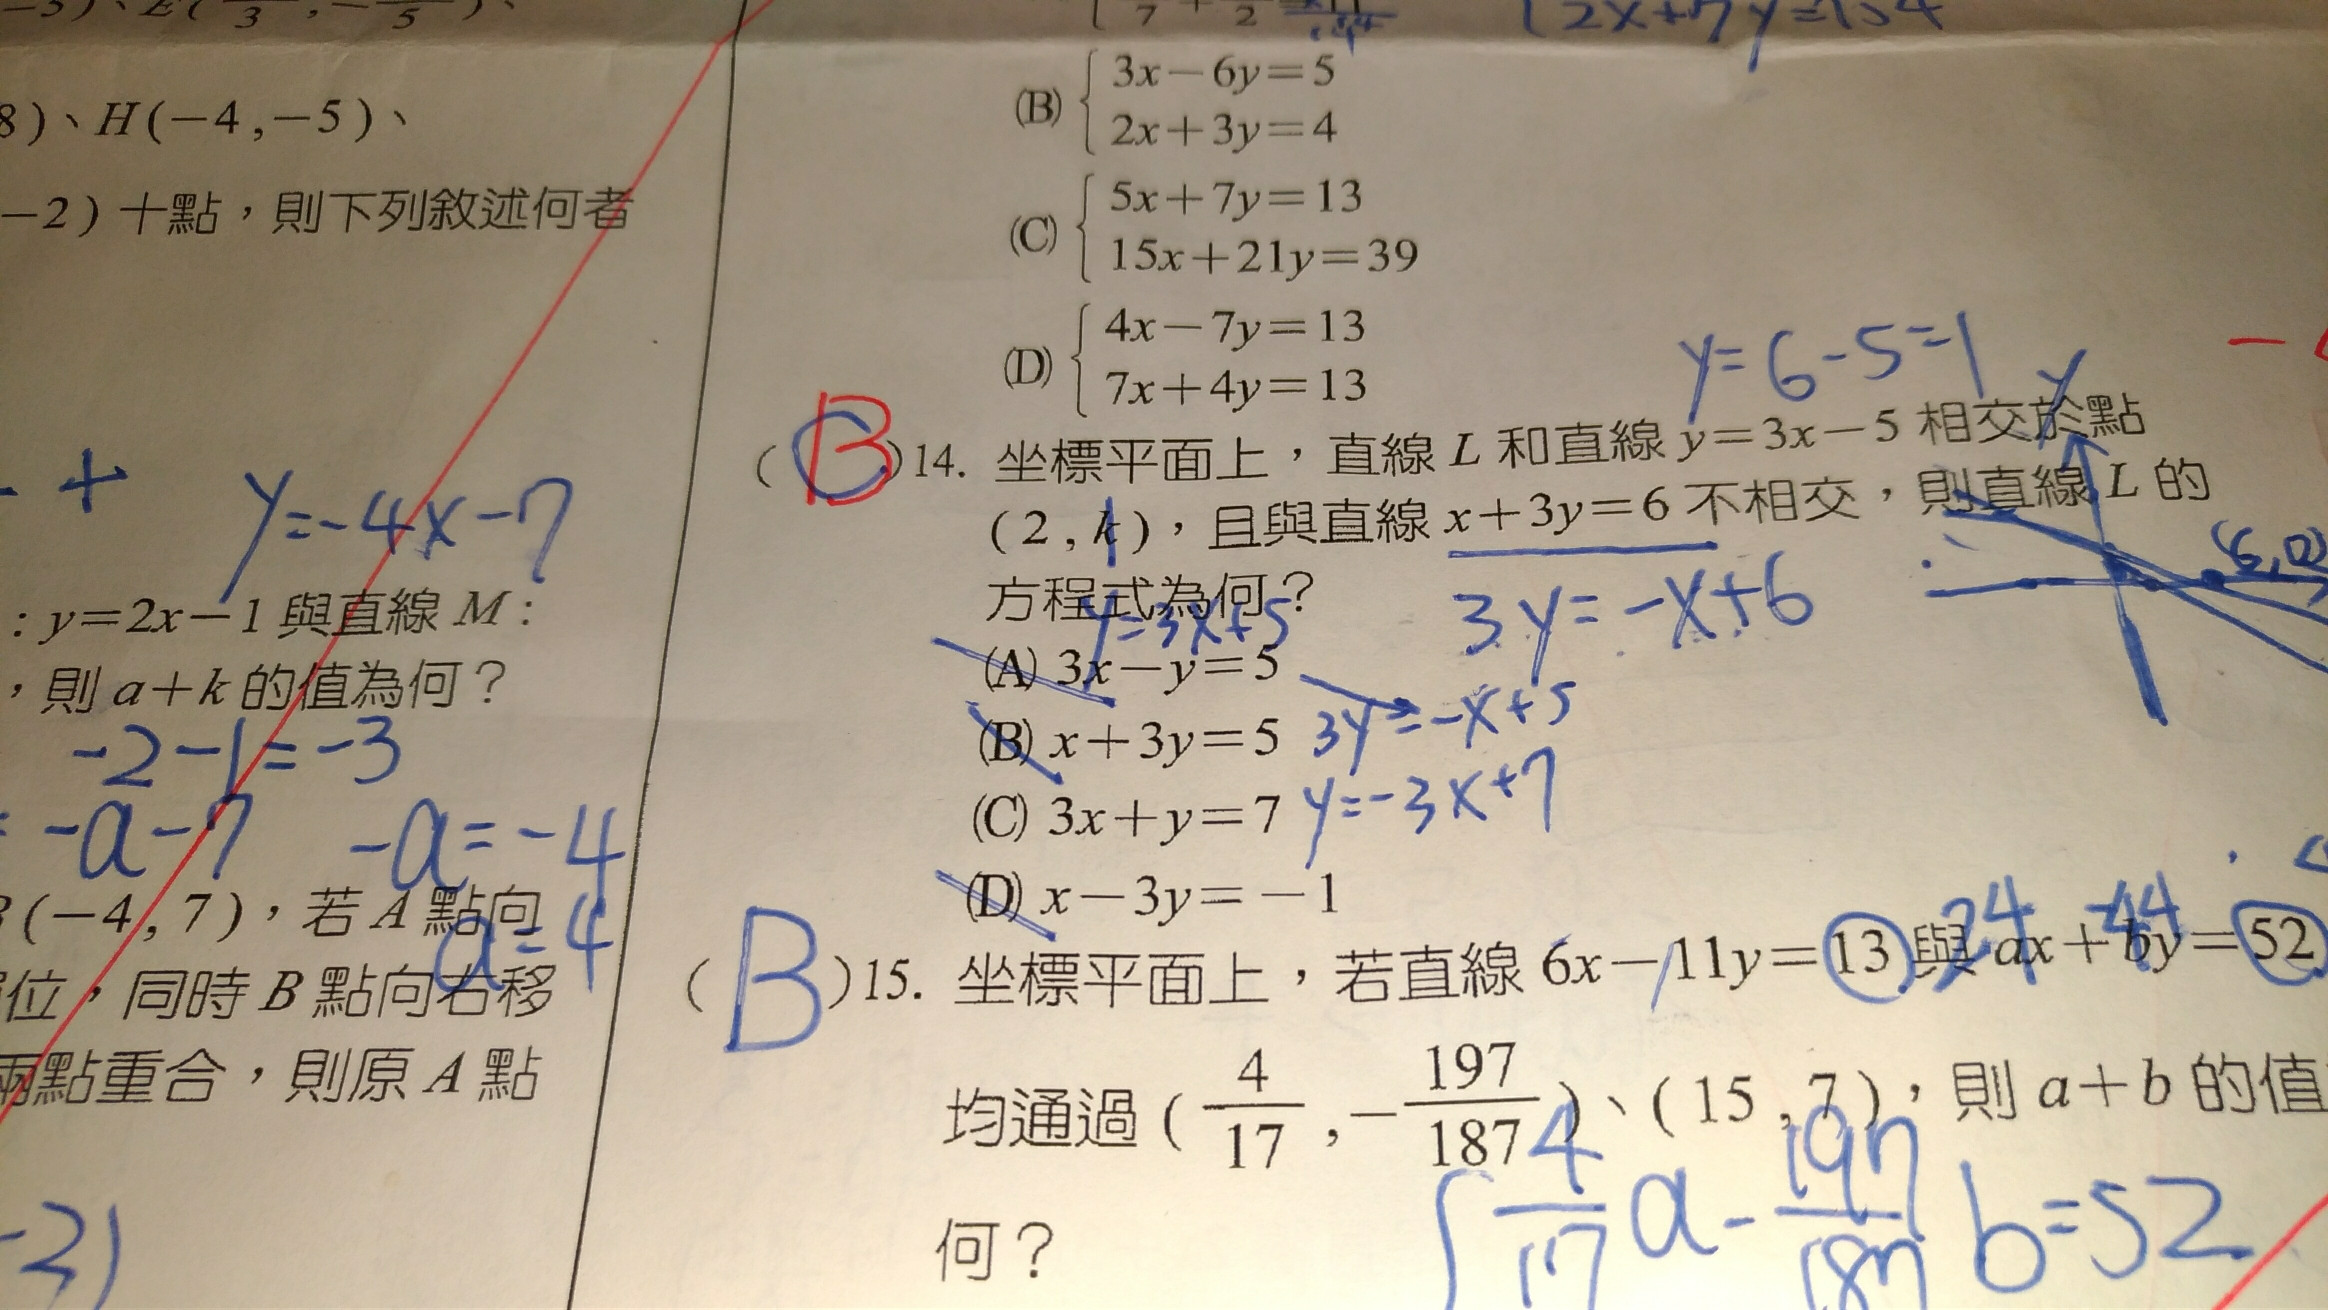 8)、H(−4,−5)、
−2)十點，則下列敘述何者
- +
y=-4x-7
:y=2x−1與直線M:
，則a+k的值為何？
-2-1=-3
-a-7 -a=-4
a=4
(−4,7)，若A點向
位，同時B點向右移
兩點重合，則原A點
-2)
2x+7y=154
(B) {3x−6y=5
2x+3y=4
(C) {5x+7y=13
15x+21y=39
(D) {4x−7y=13
7x+4y=13
y=6-5=1
y
( C B )14. 坐標平面上，直線L和直線y=3x−5相交於點
(2,k)，且與直線x+3y=6不相交，則直線L的
1
(6,0)
方程式為何？
y=3x+5
3y=-x+6
(A) 3x−y=5
(B) x+3y=5 3y=-x+5
(C) 3x+y=7 y=-3x+7
(D) x−3y=−1
24 -44
( B )15. 坐標平面上，若直線6x−11y=13與ax+by=52
均通過(4/17,−197/187)、(15,7)，則a+b的值
何？
4/17 a - 197/187 b=52